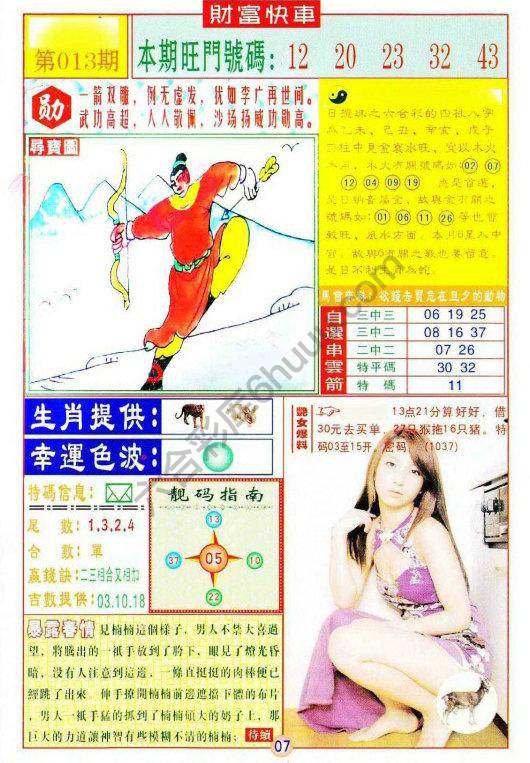 財富快車
第013期
本期旺門號碼: 12 20 23 32 43
勋
一箭双雕，例无虚发，犹如李广再世间。
武功高超，人人敬佩，沙场扬威功勋高。
尋寶圖
日搅珠之六合彩的四柱八字
爲乙未、己丑、辛亥、戊子
四柱中見金衰水旺，宜以木火
02 07
12 04 09 19 應是首選，
是日納音屬金，故與金有關之
號碼如: 01 06 11 26 等也當
較旺，風水方面，本月6星入中
宮，故與6有關之數也要留意。
馬會資料: 欲錢去買危在旦夕的動物
自選串雲箭
三中三 06 19 25
三中二 08 16 37
二中二 07 26
特平碼 30 32
特 碼 11
生肖提供:
幸運色波:
特碼信息:
尾 數: 1,3,2,4
合 數: 單
贏錢訣: 二三相合又相加
吉數提供: 03.10.18
靓码指南
13
37 05 10
22
艷女爆料
13点21分算好好，借
30元去买单，27只猴拖16只猪。特
码03至15开，密码 (1037)
暴露春情 見楠楠這個樣子，男人不禁大喜過
望，將騰出的一祇手放到了胯下，眼見了燈光昏
暗，没有人注意到這邊，一條直挺挺的肉棒便已
經跳了出來。伸手撩開楠楠前邊遮擋下體的布片
，男人一祇手猛的抓到了楠楠碩大的奶子上，那
巨大的力道讓神智有些模糊不清的楠楠; 待續
07
六合彩库6huu.com